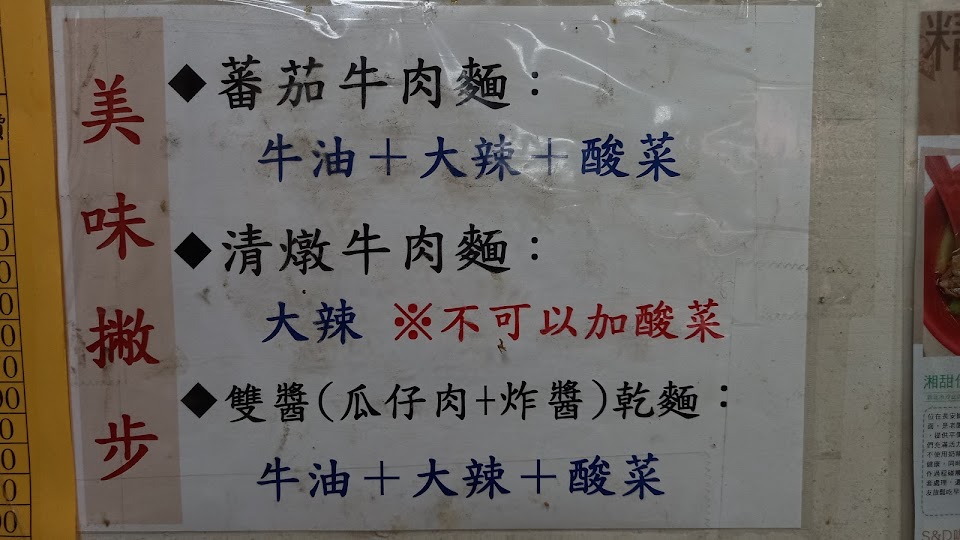 美味撇步
◆蕃茄牛肉麵：
牛油＋大辣＋酸菜
◆清燉牛肉麵：
大辣 ※不可以加酸菜
◆雙醬(瓜仔肉+炸醬)乾麵：
牛油＋大辣＋酸菜
精
湘甜